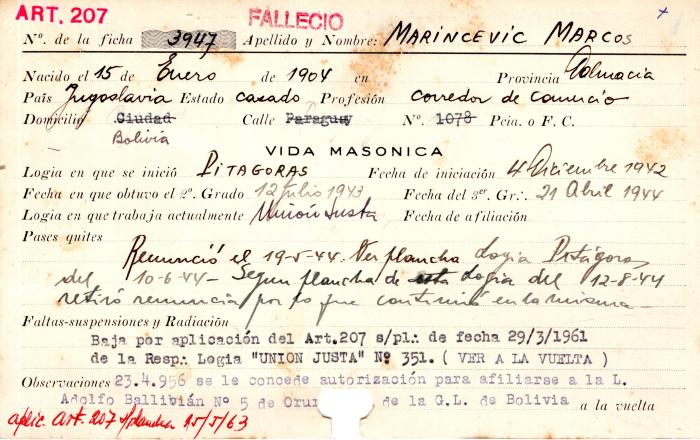 ART. 207 FALLECIO
Nº. de la ficha 3947 Apellido y Nombre: MARINCEVIC MARCOS
Nacido el 15 de Enero de 1904 en Provincia Dalmacia
País Jugoslavia Estado casado Profesión corredor de comercio
Domicilio Ciudad Calle Paraguay Nº. 1078 Pcia. o F. C.
Bolivia
VIDA MASONICA
Logia en que se inició PITAGORAS Fecha de iniciación 4 Diciembre 1942
Fecha en que obtuvo el 2º. Grado 12 julio 1943 Fecha del 3er. Gr.: 21 Abril 1944
Logia en que trabaja actualmente Unión Justa Fecha de afiliación
Pases quites
Renunció el 19-5-44. Ver plancha Logia Pitágoras
del 10-6-44 - Segun plancha de esta Logia del 12-8-44
retiró renuncia por lo que continúa en la misma
Faltas-suspensiones y Radiación
Baja por aplicación del Art.207 s/pl: de fecha 29/3/1961
de la Resp: Logia "UNION JUSTA" Nº 351. ( VER A LA VUELTA )
Observaciones 23.4.956 se le concede autorización para afiliarse a la L.
Adolfo Ballivián Nº 5 de Orur de la G.L. de Bolivia
a la vuelta
aplic. art. 207 s/plancha 15/5/63